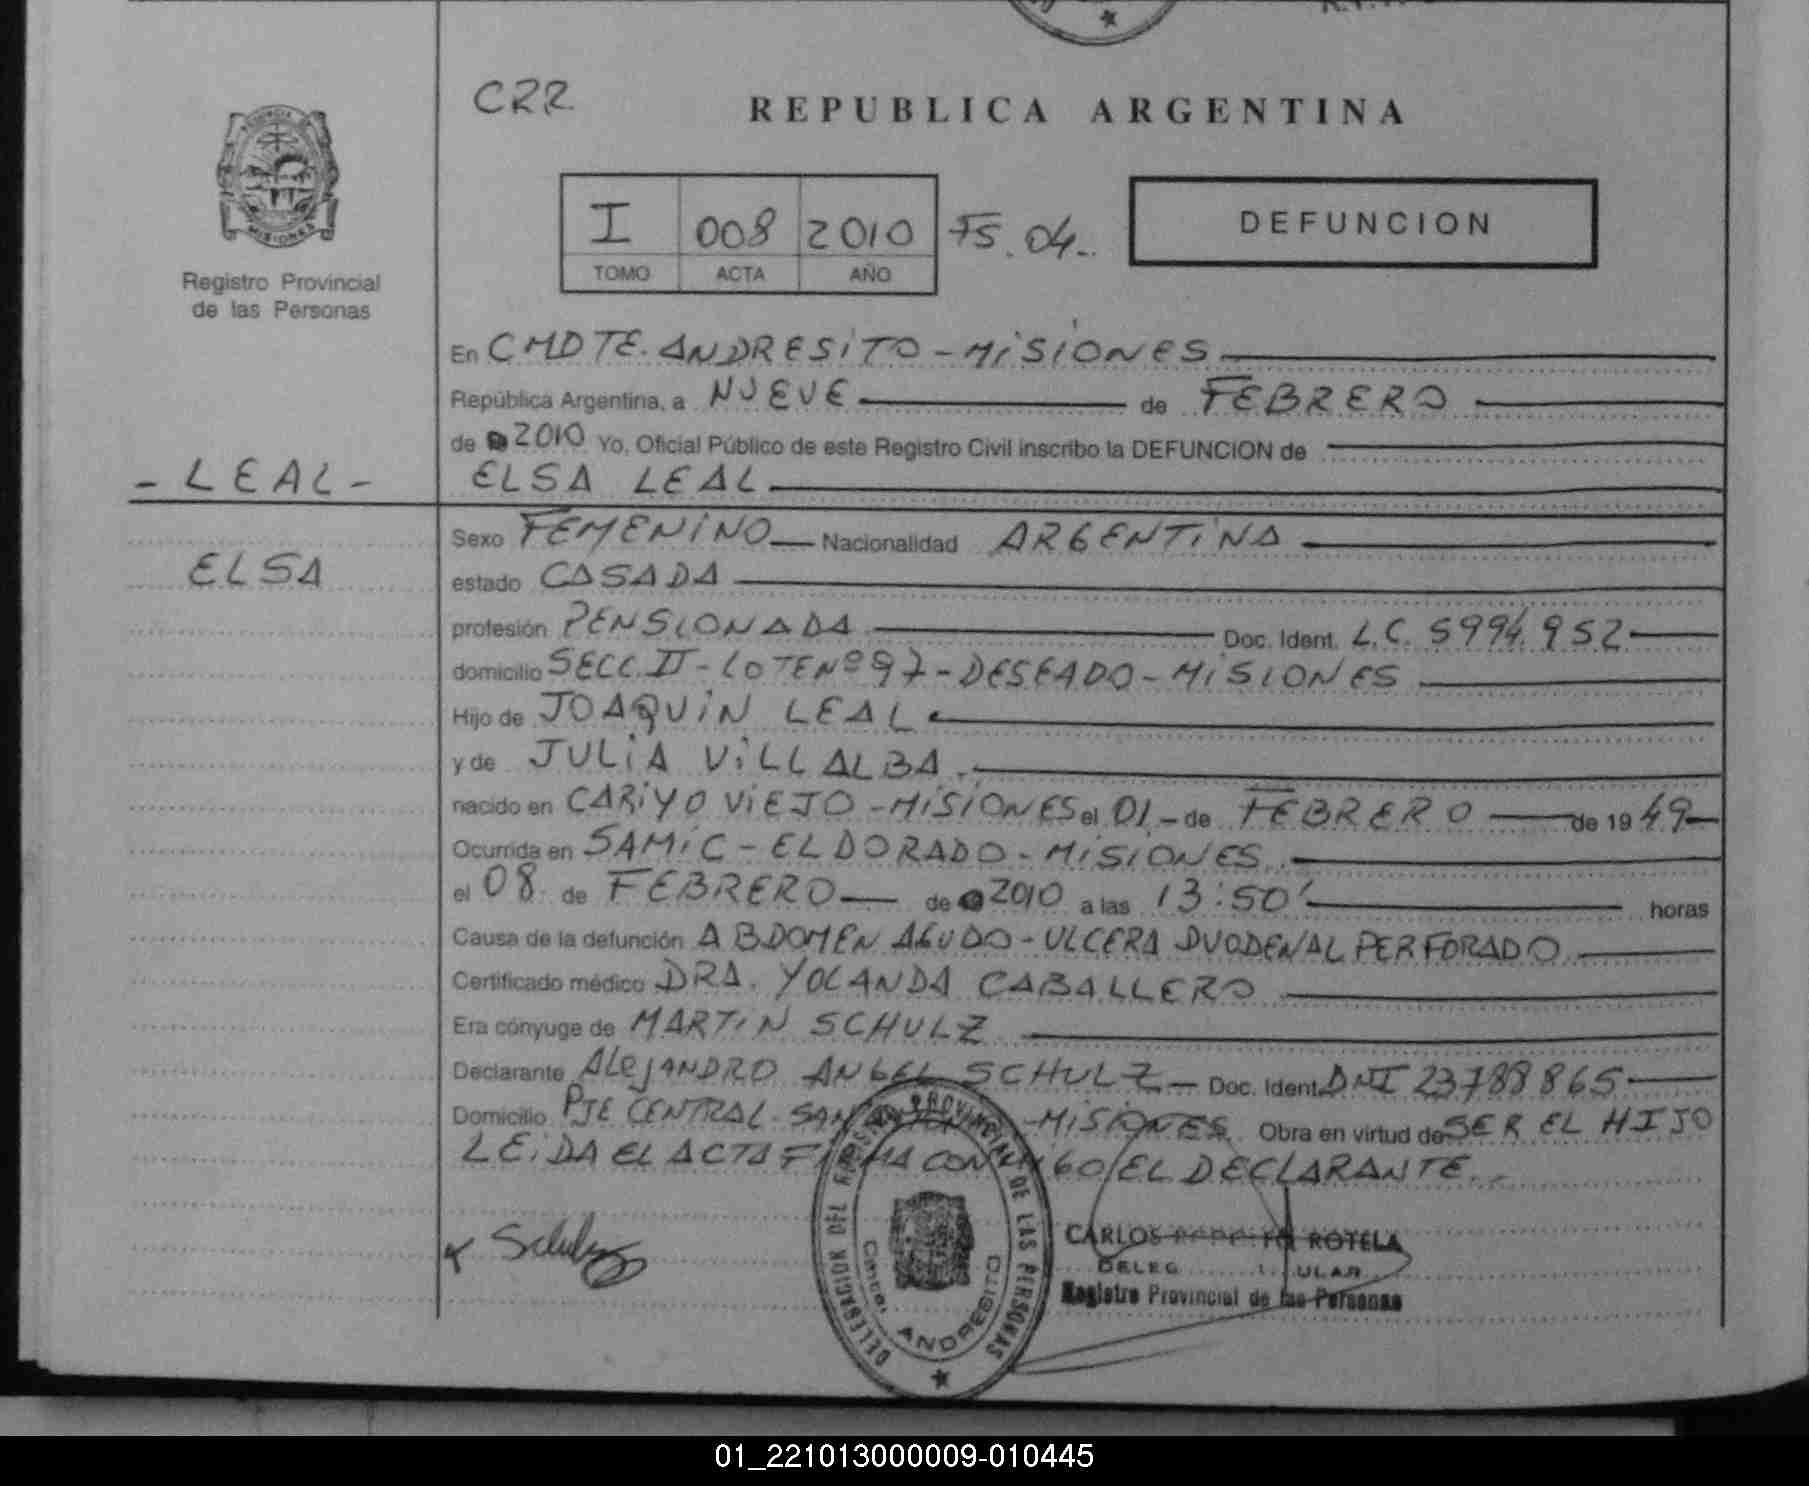 CRR
REPUBLICA ARGENTINA
I 008 2010 F5.04.
TOMO ACTA AÑO
DEFUNCION
PROVINCIA
MISIONES
Registro Provincial
de las Personas
En CMDTE. ANDRESITO - MISIONES
República Argentina, a NUEVE de FEBRERO
de 2010 Yo, Oficial Público de este Registro Civil inscribo la DEFUNCION de
- LEAL - ELSA LEAL
ELSA
Sexo FEMENINO Nacionalidad ARGENTINA
estado CASADA
profesión PENSIONADA Doc. Ident. L.C. 5994.952
domicilio SECC. II - LOTE Nº 97 - DESEADO - MISIONES
Hijo de JOAQUIN LEAL
y de JULIA VILLALBA.
nacido en CARIYO VIEJO - MISIONES el 01 - de FEBRERO de 1949
Ocurrida en SAMIC - ELDORADO - MISIONES
el 08 de FEBRERO de 2010 a las 13:50' horas
Causa de la defunción ABDOMEN AGUDO - ULCERA DUODENAL PERFORADO
Certificado médico DRA. YOLANDA CABALLERO
Era cónyuge de MARTIN SCHULZ
Declarante ALEJANDRO ANGEL SCHULZ Doc. Ident. DNI 23788865
Domicilio PJE CENTRAL - SAN - MISIONES Obra en virtud de SER EL HIJO
LEIDA EL ACTA FIRMA CONMIGO EL DECLARANTE.
x Schulz
DELEGACION DEL REGISTRO PROVINCIAL DE LAS PERSONAS
ANDRESITO
CARLOS ROTELA
Registro Provincial de las Personas
01_221013000009-010445